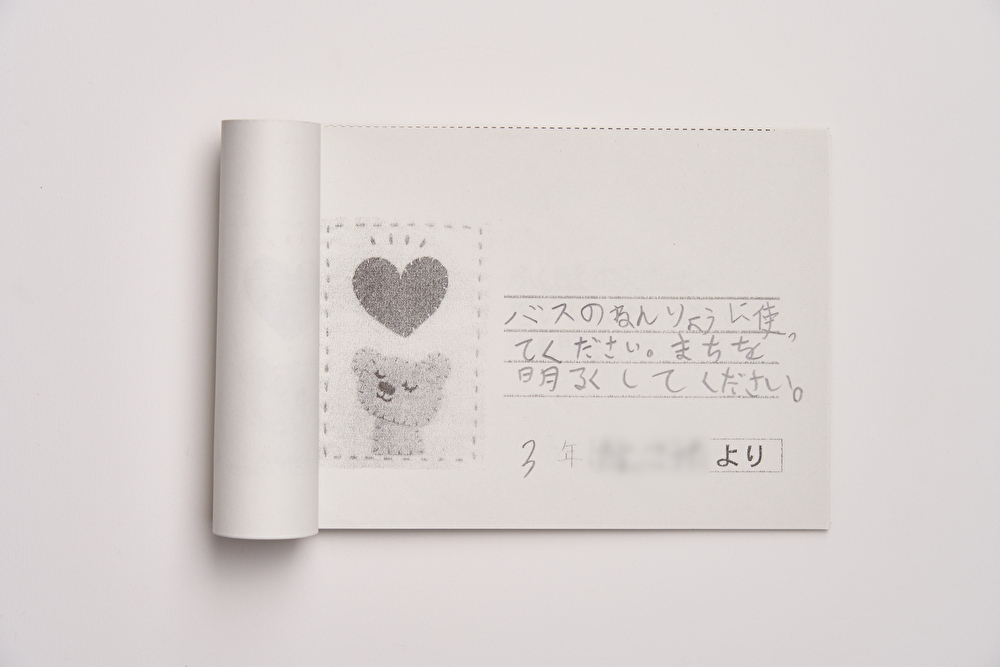 バスのねんりょうに使っ
てください。まちを
明るくしてください。
3年 より